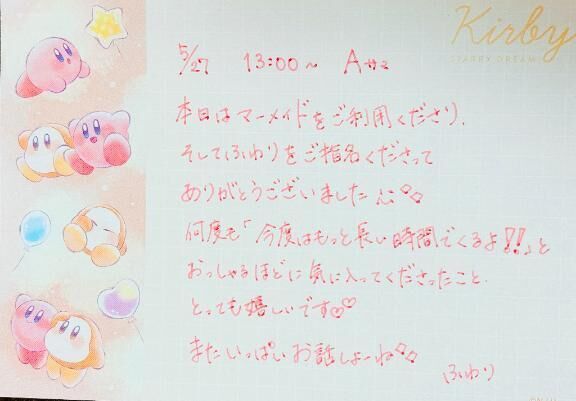 Kirby
STARRY DREAM
5/27 13:00～ Aサマ
本日はマーメイドをご利用くださり、
そしてふわりをご指名くださって
ありがとうございました
何度も「今度はもっと長い時間でくるよ!!」と
おっしゃるほどに気に入ってくださったこと、
とっても嬉しいです♡♡
またいっぱいお話しよーね
ふわり